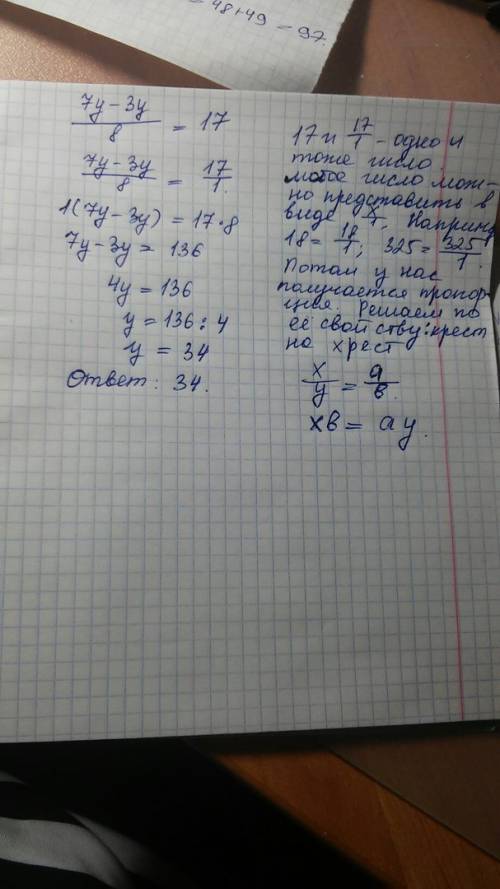 = 48+49 = 97.
7y-3y/8 = 17
7y-3y/8 = 17/1.
1(7y-3y) = 17·8
7y-3y = 136
4y = 136
y = 136:4
y = 34
Ответ: 34.
17 и 17/1 - одно и
тоже число.
число мож-
но представить в
виде x/1. Наприме
18= 18/1; 325= 325/1.
Потом у нас
получается пропор-
ция. Решаем по
её свойству: крест
на хрест
x/y = a/в.
xв = ay.